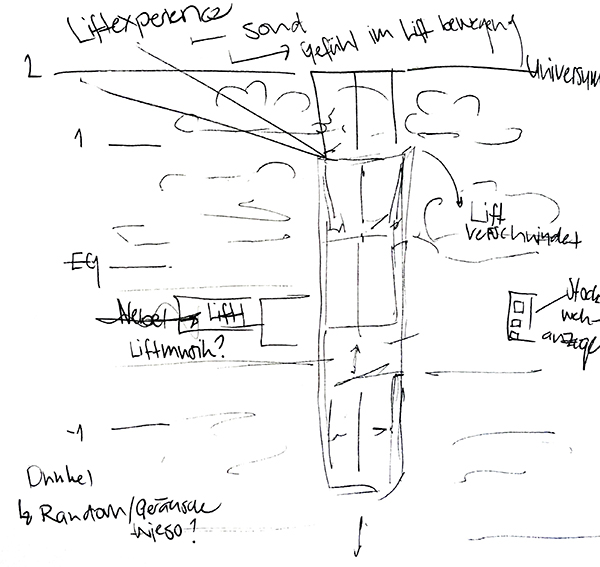 Liftexperience
sond
Gefühl im Lift bewegung
2
Universum
1
Lift
verschwindet
EG
Nebel
Lift
Liftmusik?
-1
Dunkel
↳ Random/Geräusche